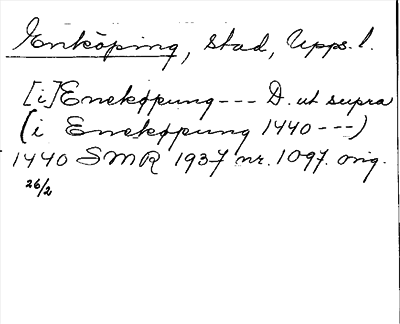 Enköping, stad, Upps. l.
[i] Enekøpung --- D. ut supra
(i Enekøpung 1440 ---)
1440 SMR 1937 nr. 1097. orig.
26/2